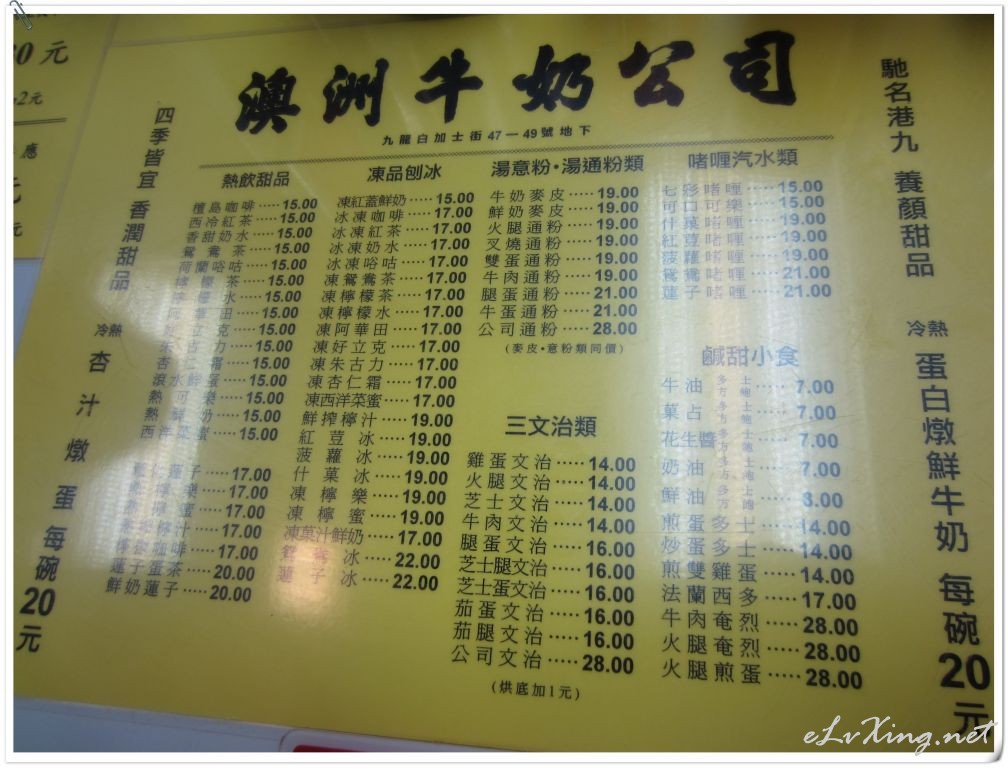 澳洲牛奶公司
九龍白加士街47－49號地下
馳名港九 養顏甜品
冷熱 蛋白燉鮮牛奶 每碗20元
四季皆宜 香潤甜品
冷熱 杏汁燉蛋 每碗20元
熱飲甜品
檀島咖啡 15.00
西冷紅茶 15.00
香甜奶水 15.00
鴛鴦茶 15.00
荷蘭唂咕 15.00
檸檬茶 15.00
檸檬水 15.00
15.00
15.00
15.00
15.00
15.00
15.00
15.00
西洋菜蜜 15.00
17.00
17.00
17.00
17.00
17.00
20.00
鮮奶蓮子 20.00
凍品刨冰
凍紅蓋鮮奶 15.00
冰凍咖啡 17.00
冰凍紅茶 17.00
冰凍奶水 17.00
冰凍唂咕 17.00
凍鴛鴦茶 17.00
凍檸檬茶 17.00
凍檸檬水 17.00
凍阿華田 17.00
凍好立克 17.00
凍朱古力 17.00
凍杏仁霜 17.00
凍西洋菜蜜 17.00
鮮搾檸汁 19.00
紅荳冰 19.00
菠蘿冰 19.00
什菓冰 19.00
凍檸樂 19.00
凍檸蜜 19.00
凍菓汁鮮奶 17.00
鴛鴦冰 22.00
蓮子冰 22.00
湯意粉·湯通粉類
牛奶麥皮 19.00
鮮奶麥皮 19.00
火腿通粉 19.00
叉燒通粉 19.00
雙蛋通粉 19.00
牛肉通粉 19.00
腿蛋通粉 21.00
牛蛋通粉 21.00
公司通粉 28.00
(麥皮·意粉類同價)
三文治類
雞蛋文治 14.00
火腿文治 14.00
芝士文治 14.00
牛肉文治 14.00
腿蛋文治 16.00
芝士腿文治 16.00
芝士蛋文治 16.00
茄蛋文治 16.00
茄腿文治 16.00
公司文治 28.00
(烘底加1元)
啫喱汽水類
七彩啫喱 15.00
可口可樂 15.00
什菓啫喱 19.00
紅荳啫喱 19.00
菠蘿啫喱 19.00
鴛鴦啫喱 21.00
蓮子啫喱 21.00
鹹甜小食
牛油 多士 方飽 7.00
菓占 多士 方飽 7.00
花生醬 多士 方飽 7.00
奶油 多士 方飽 7.00
鮮油 多士 方飽 8.00
煎蛋多士 14.00
炒蛋多士 14.00
煎雙雞蛋 14.00
法蘭西多 17.00
牛肉奄烈 28.00
火腿奄烈 28.00
火腿煎蛋 28.00
元
2元
應
元
元
eLvXing.net